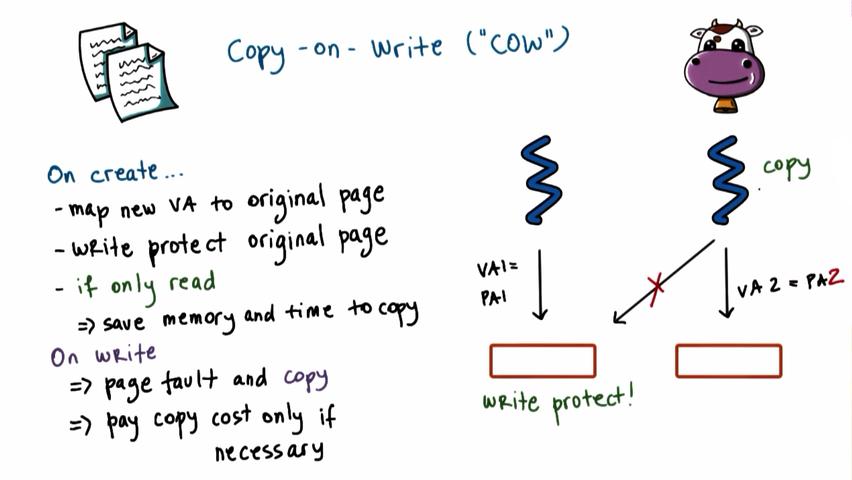 Copy-on-Write ("COW")
On create...
- map new VA to original page
- write protect original page
- if only read
=> save memory and time to copy
On write
=> page fault and copy
=> pay copy cost only if
necessary
copy
VA1=
PA1
VA 2 = PA2
write protect!